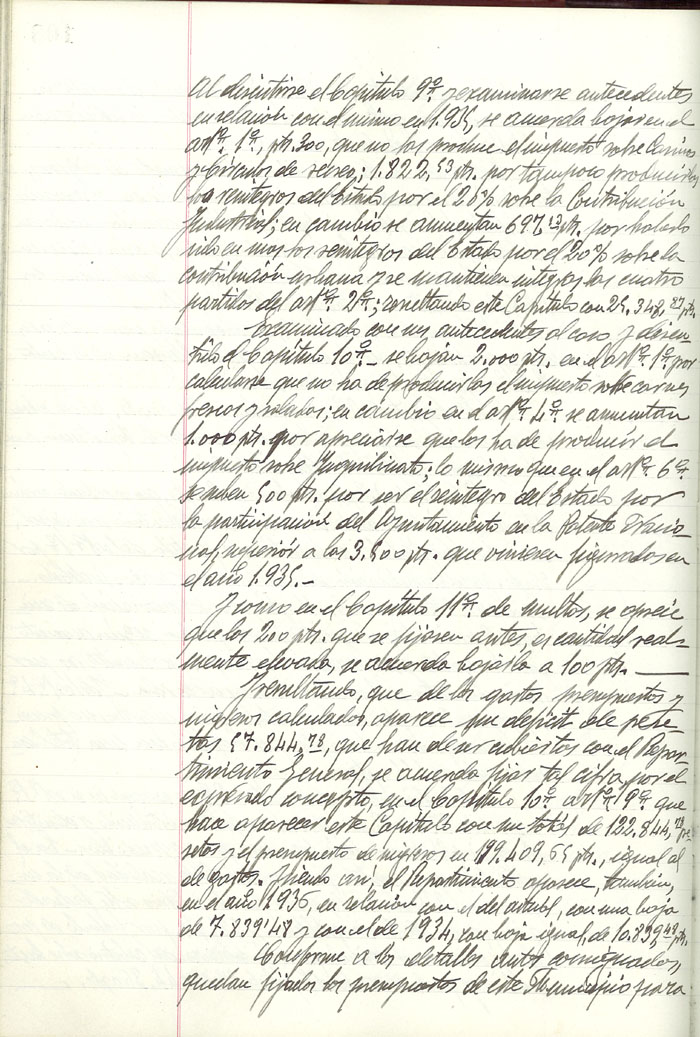 Al discutirse el Capítulo 9º y examinarse antecedentes
en relación con el mismo en 1.935, se acuerda bajar en el
artº. 1º, pts. 300, que no los produce el impuesto sobre Casinos
y Círculos de recreo; 1.822,53 pts. por tampoco producirlos
los reintegros del Estado por el 20% sobre la Contribución
Industrial; en cambio se aumentan 697,13 pts. por haber
sido en más los reintegros del Estado por el 20% sobre la
contribución urbana y se mantienen integros los cuatro
partidos del artº. 2º; resultando este Capítulo con 25.348,27 pts.
Examinado con sus antecedentes al caso y discu-
tido el Capítulo 10º - se bajan 2.000 pts. en el artº. 1º por
calcularse que no ha de producirlos el impuesto sobre carnes
frescas y saladas; en cambio en el artº. 4º se aumentan
1.000 pts. por apreciarse que los ha de producir el
impuesto sobre Inquilinato; lo mismo que en el artº. 6º
se suben 500 pts. por ser el reintegro del Estado por
la participación del Ayuntamiento en la Patente Nacio-
nal, superior a las 3.500 pts. que vinieron figurados en
el año 1.935.-
Y como en el Capítulo 11º de multas, se aprecie
que las 200 pts. que se fijasen antes, es cantidad real-
mente elevada, se acuerda bajarla a 100 pts.
Y resultando, que de los gastos presupuestos y
ingresos calculados, aparece un deficit de pese-
tas 57.844,78, que han de ser cubiertas con el Repar-
timiento General, se acuerda fijar tal cifra por el
expresado concepto, en el Capítulo 10º artº 9º que
hace aparecer este Capítulo con un total de 122.844,78 pe-
setas y el presupuesto de ingresos en 199.409,65 pts., igual al
de gastos. Siendo así, el Repartimiento aparece, también,
en el año 1936, en relación con el del actual, con una baja
de 7.839'48 y con el de 1934, con baja igual, de 10.839,48 pts.
Conforme a los detalles antes consignados,
quedan fijados los presupuestos de este Municipio para